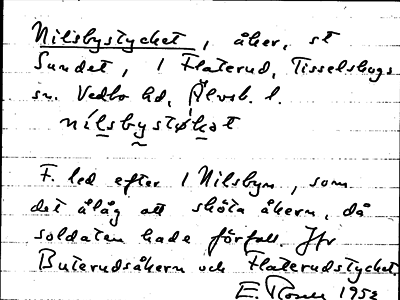 Nilsbystycket, åker, st
Sundet, 1 Flaterud, Tisselskogs
sn. Vedbo hd, Älvsb. l.
nílsbystøkat
F. led efter 1 Nilsbyn, som
det ålåg att sköta åkern, då
soldaten hade förfall. Jfr
Buterudsåkern och Flaterudstycket.
E. 1952